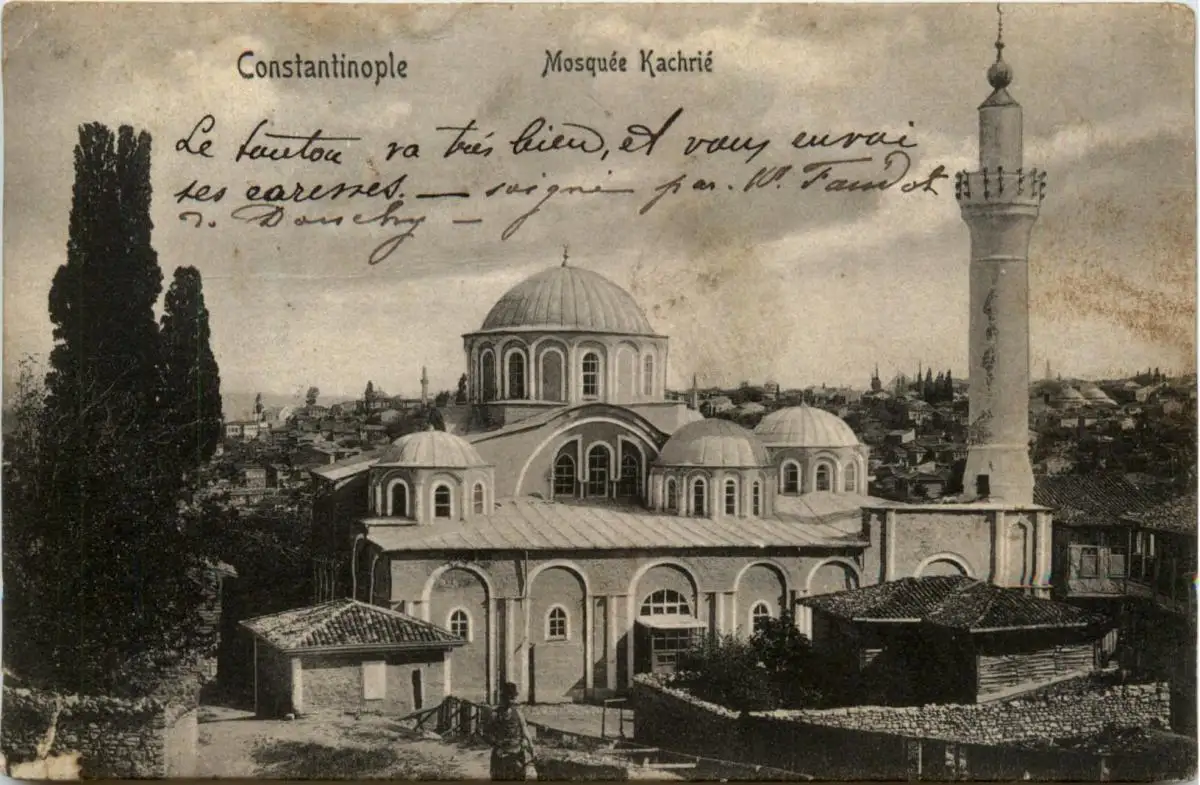 Constantinople
Mosquée Kachrié
Le toutou va très bien, et vous envoi
ses caresses. — soigné par